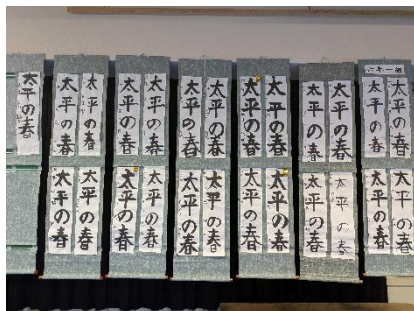 六年一組
太平の春
太平の春
太平の春
太平の春
太平の春
太平の春
太平の春
太平の春
太平の春
太平の春
太平の春
太平の春
太平の春
太平の春
太平の春
太平の春
太平の春
太平の春
太平の春
太平の春
太平の春
太平の春
太平の春
太平の春
太平の春